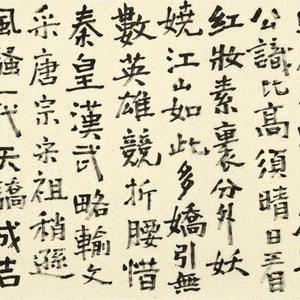 公識比高須晴日看
紅妝素裹分外妖
嬈江山如此多嬌引無
數英雄競折腰惜
秦皇漢武略輸文
采唐宗宋祖稍遜
風騷一代天驕成吉